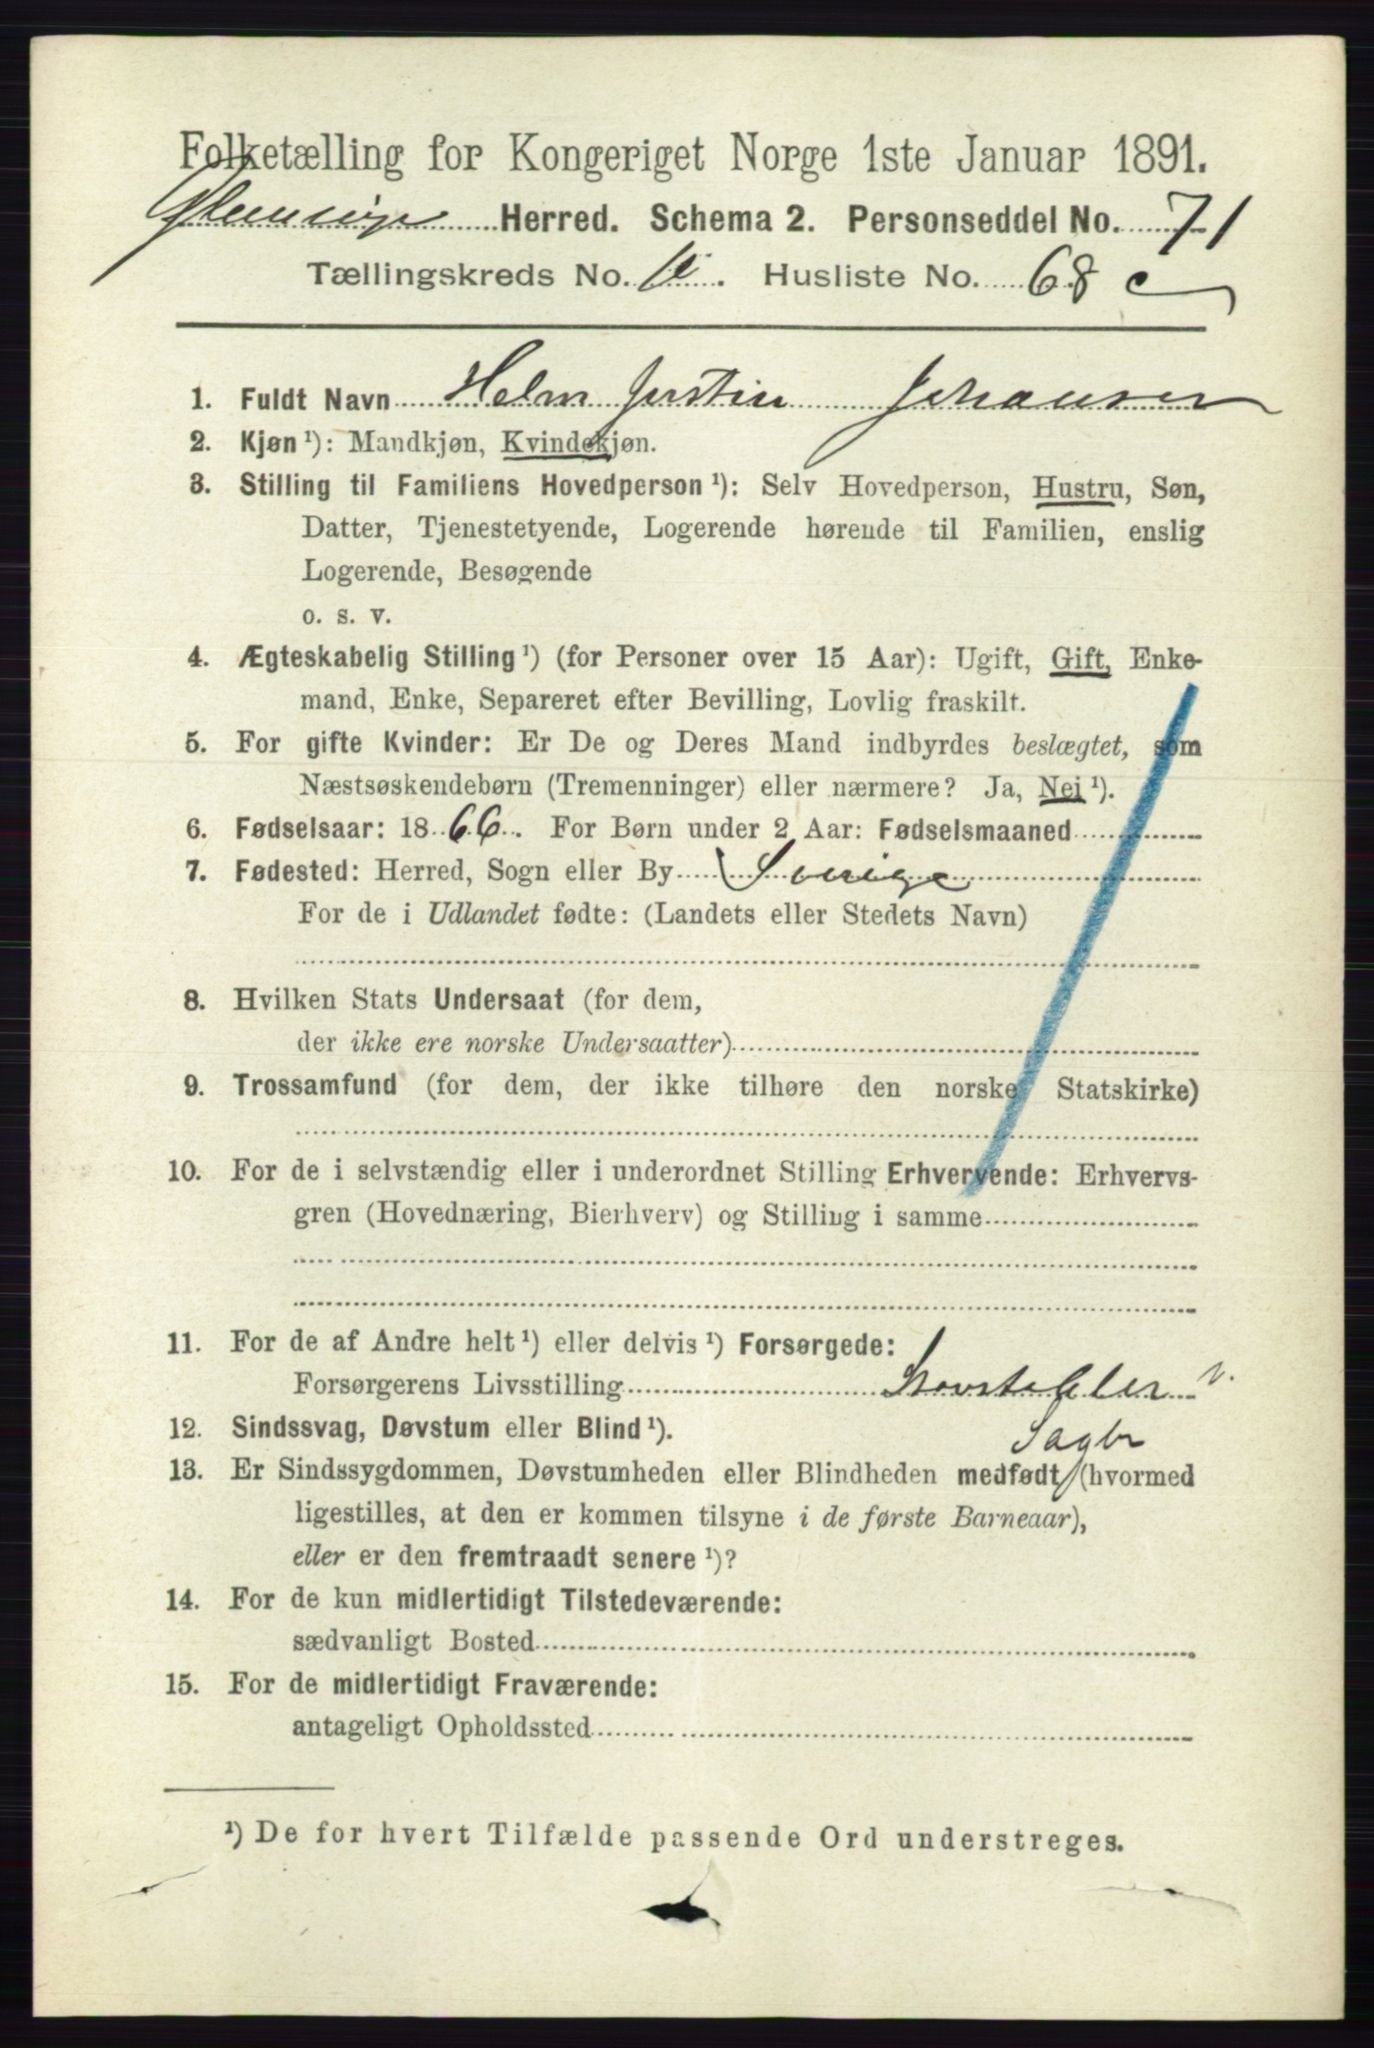 Folketælling for Kongeriget Norge 1ste Januar 1891.
Herred. Schema 2. Personseddel No. 71
Tællingskreds No. Husliste No. 68 c
1. Fuldt Navn Johansen
2. Kjøn ¹): Mandkjøn, Kvindekjøn.
3. Stilling til Familiens Hovedperson ¹): Selv Hovedperson, Hustru, Søn,
Datter, Tjenestetyende, Logerende hørende til Familien, enslig
Logerende, Besøgende
o. s. v.
4. Ægteskabelig Stilling ¹) (for Personer over 15 Aar): Ugift, Gift, Enke-
mand, Enke, Separeret efter Bevilling, Lovlig fraskilt.
5. For gifte Kvinder: Er De og Deres Mand indbyrdes beslægtet, som
Næstsøskendebørn (Tremenninger) eller nærmere? Ja, Nei ¹).
6. Fødselsaar: 1866. For Børn under 2 Aar: Fødselsmaaned
7. Fødested: Herred, Sogn eller By Sverige
For de i Udlandet fødte: (Landets eller Stedets Navn)
8. Hvilken Stats Undersaat (for dem,
der ikke ere norske Undersaatter)
9. Trossamfund (for dem, der ikke tilhøre den norske Statskirke)
10. For de i selvstændig eller i underordnet Stilling Erhvervende: Erhvervs-
gren (Hovednæring, Bierhverv) og Stilling i samme
11. For de af Andre helt ¹) eller delvis ¹) Forsørgede:
Forsørgerens Livsstilling v.
12. Sindssvag, Døvstum eller Blind ¹). Sagbr
13. Er Sindssygdommen, Døvstumheden eller Blindheden medfødt (hvormed
ligestilles, at den er kommen tilsyne i de første Barneaar),
eller er den fremtraadt senere ¹)?
14. For de kun midlertidigt Tilstedeværende:
sædvanligt Bosted
15. For de midlertidigt Fraværende:
antageligt Opholdssted
¹) De for hvert Tilfælde passende Ord understreges.